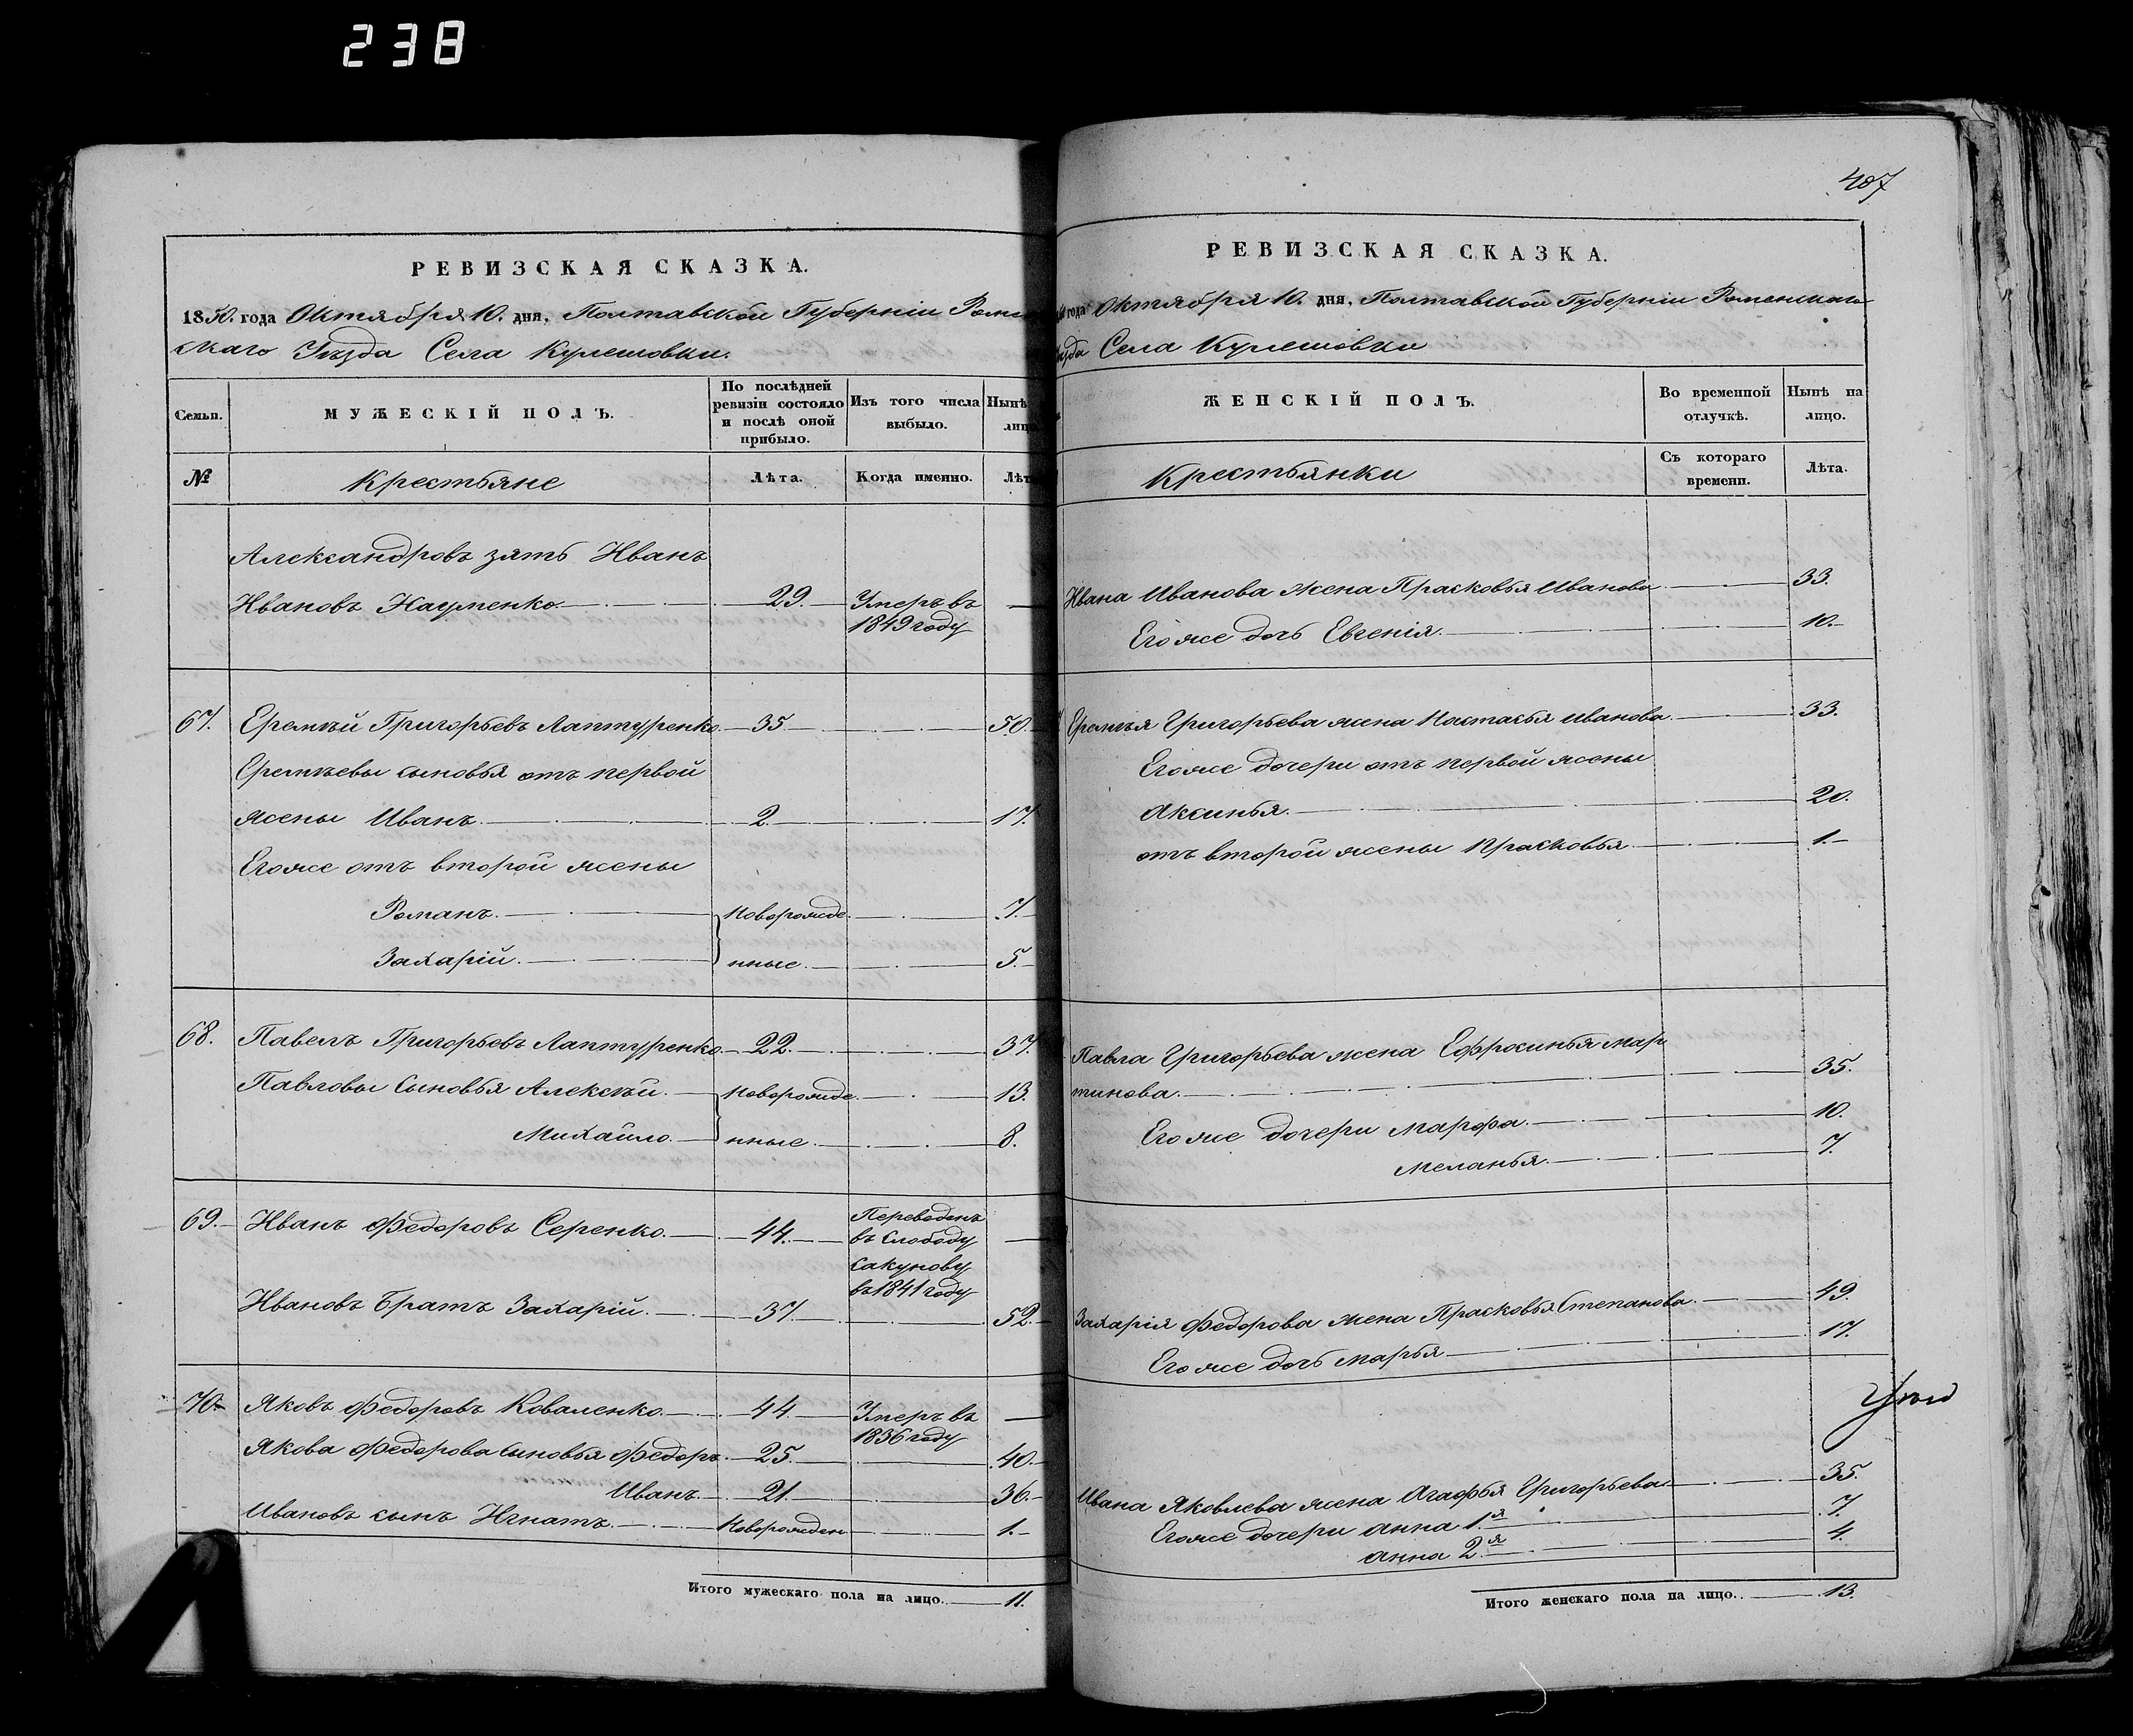 238
РЕВИЗСКАЯ СКАЗКА.
1850. года Октября 10. дня, Полтавской Губерніи Ромен
скаго Уезда Села Кулешовки.
Семьи.
МУЖЕСКІЙ ПОЛЪ.
По послѣдней ревизіи состояло и послѣ оной прибыло.
Изъ того числа выбыло.
Нынѣ лиц
№
Крестьяне
Лѣта.
Когда именно.
Лѣт
Александровъ зять Иванъ
Ивановъ Науменко. 29. Умеръ въ
1849 году
67. Еремѣй Григорьевъ Лаптуренко. 35 50.
Еремѣевы сыновья отъ первой
жены Иванъ. 2. 17.
Егоже отъ второй жены
Романъ. Новорожде 7.
Захарій. нные. 5.
68. Павелъ Григорьевъ Лаптуренко. 22. 37.
Павловы Сыновья Алексѣй. Новорожде 13.
Михайло. нные. 8.
69. Иванъ Федоровъ Серенко. 44. Переведенъ
въ Слободу
Сакунову
въ 1841 году
Ивановъ Братъ Захарій. 37. 52.
70. Яковъ Федоровъ Коваленко. 44. Умеръ въ
1836 году
Якова Федорова Сыновья Федоръ. 25. 40.
Иванъ. 21. 36.
Ивановъ сынъ Игнатъ. Новорожден 1.
Итого мужескаго пола на лицо. 11.
407
РЕВИЗСКАЯ СКАЗКА.
года Октября 10. дня, Полтавской Губерніи Роменскаго
зда Села Кулешовки
ЖЕНСКІЙ ПОЛЪ.
Во временной отлучкѣ.
Нынѣ на лицо.
Крестьянки
Съ котораго времени.
Лѣта.
Ивана Иванова жена Прасковья Иванова 33.
Егоже дочь Евгенія. 10.
Еремѣя Григорьева жена Настасья Иванова. 33.
Егоже дочери отъ первой жены
Аксинья. 20.
отъ второй жены Прасковья. 1.
Павла Григорьева жена Ефросинья Мар
тинова. 35.
Егоже дочери Марфа. 10.
Меланья. 7.
Захарія Федорова жена Прасковья Степанова. 49.
Егоже дочь Марья 17.
Ивана Яковлева жена Агафья Григорьева 35.
Егоже дочери Анна 1.я 7.
Анна 2.я 4.
Итого женскаго пола на лицо. 13.